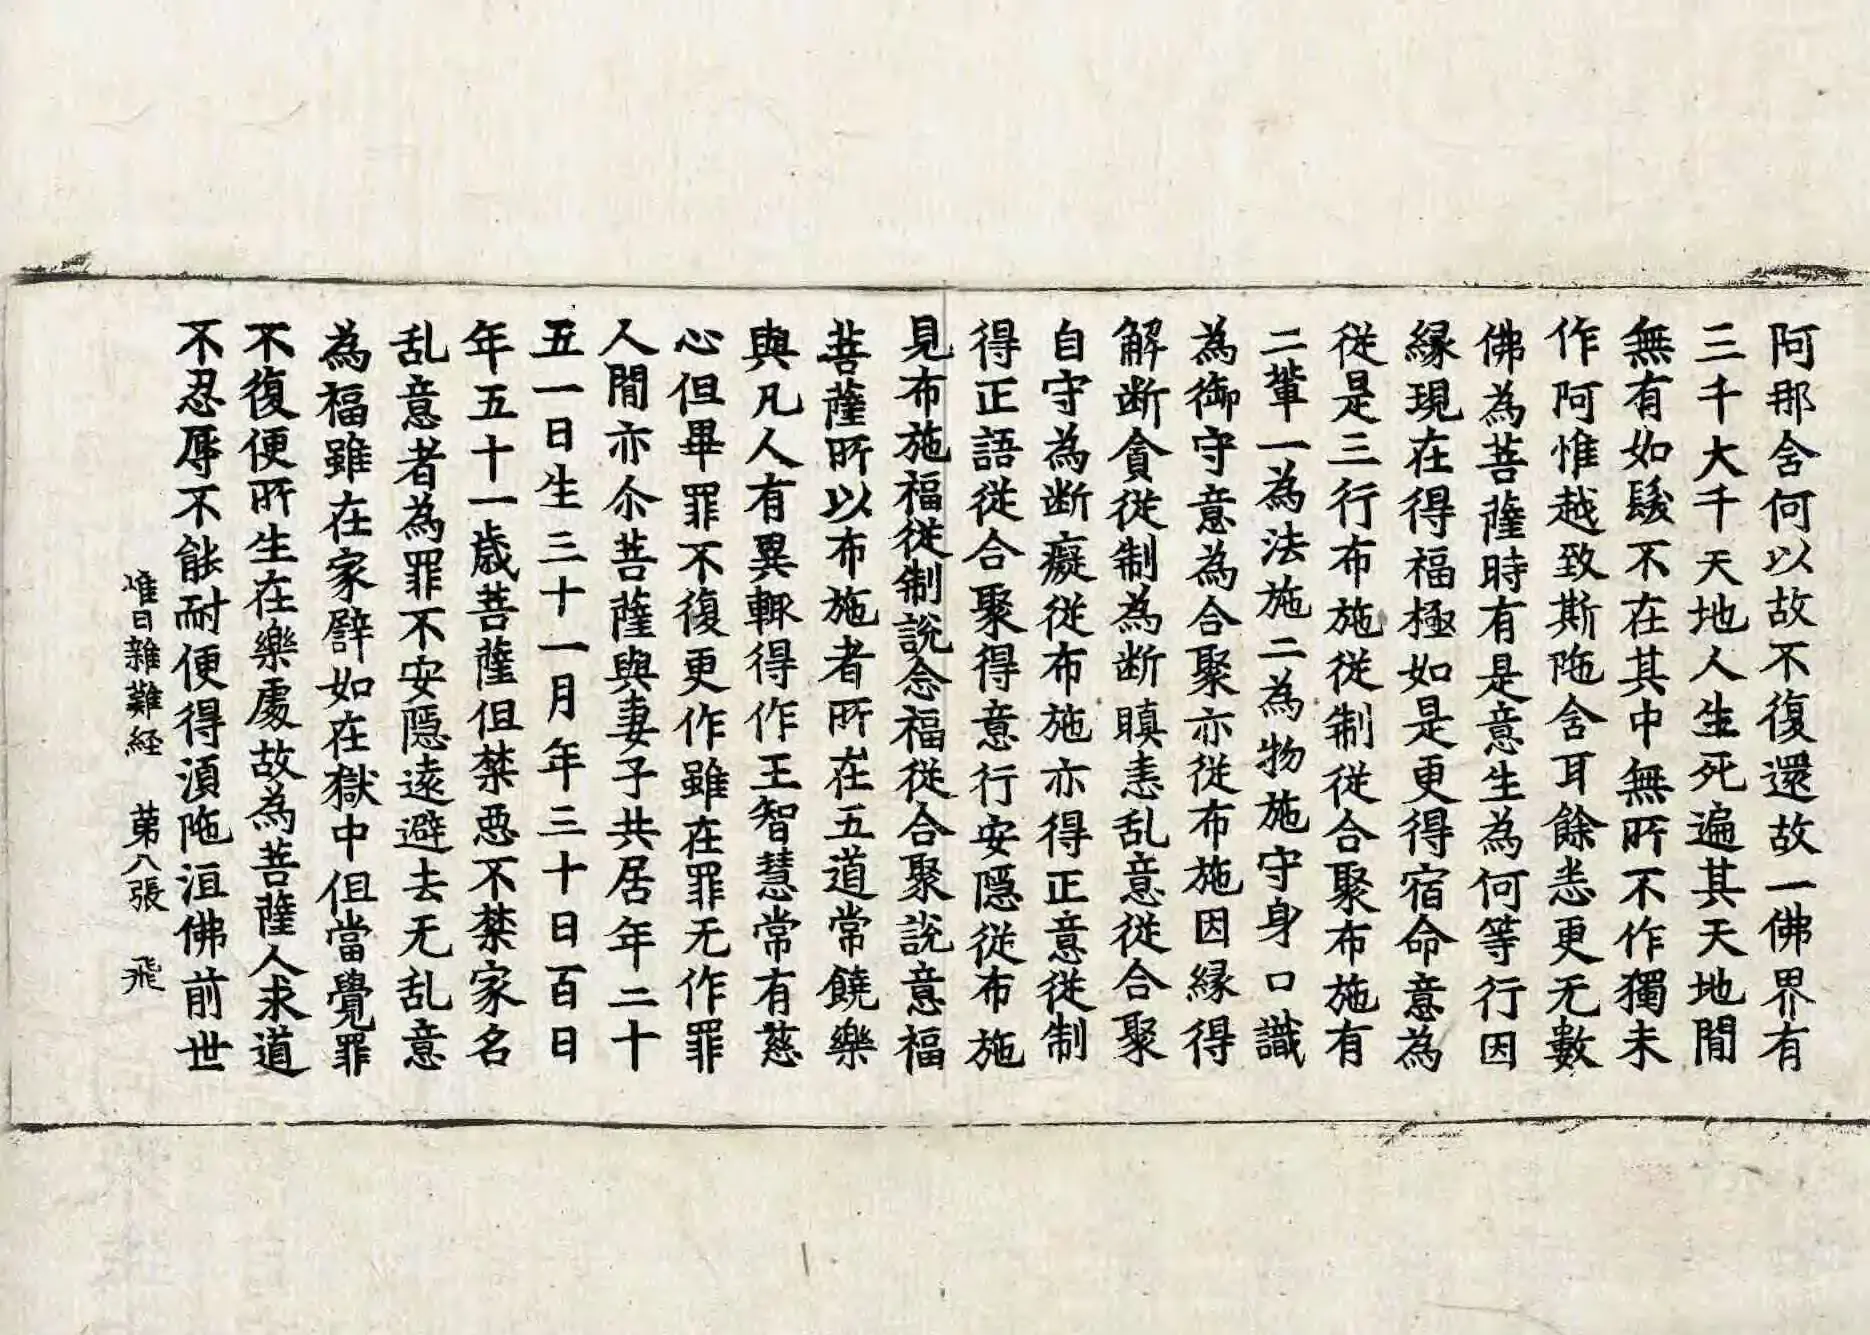 阿那含何以故不復還故一佛界有
三千大千天地人生死遍其天地間
無有如髮不在其中無所不作獨未
作阿惟越致斯陁含耳餘悉更无數
佛為菩薩時有是意生為何等行因
縁現在得福極如是更得宿命意為
從是三行布施從制從合聚布施有
二輩一為法施二為物施守身口識
為御守意為合聚亦從布施因縁得
解断貪從制為断瞋恚乱意從合聚
自守為断癡從布施亦得正意從制
得正語從合聚得意行安隠從布施
見布施福從制說念福從合聚說意福
菩薩所以布施者所在五道常饒樂
與凡人有異輙得作王智慧常有慈
心但畢罪不復更作雖在罪无作罪
人間亦尒菩薩與妻子共居年二十
五一日生三十一月年三十日百日
年五十一歳菩薩但禁惡不禁家名
乱意者為罪不安隠逺避去无乱意
為福雖在家辟如在獄中但當覺罪
不復便所生在樂處故為菩薩人求道
不忍辱不能耐便得湏陁洹佛前世
惟日雜難経　第八張　飛